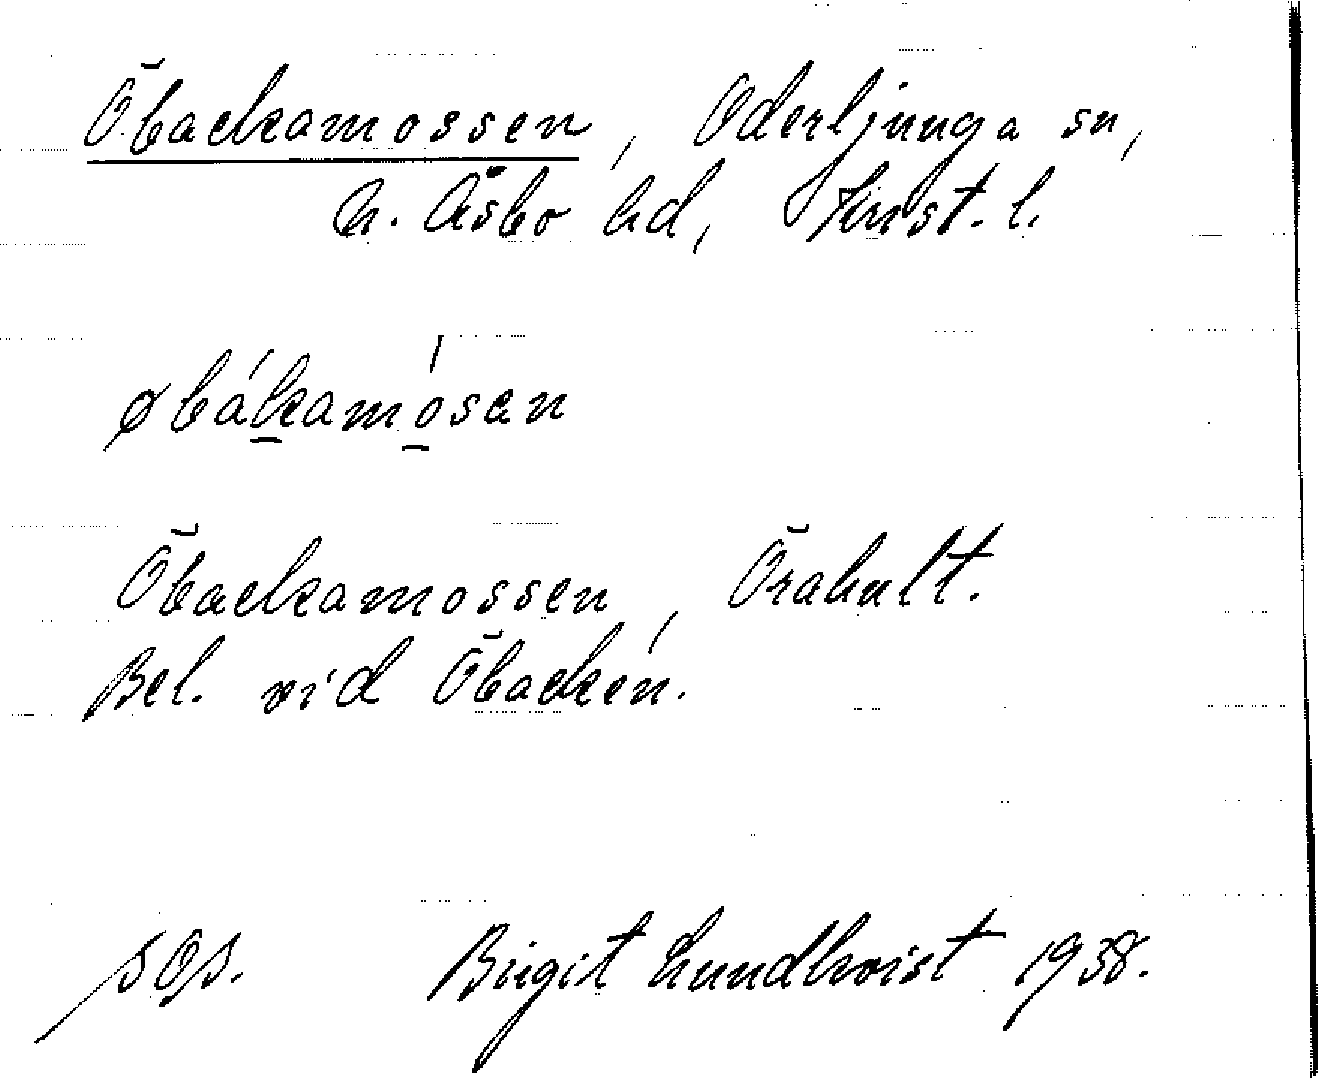 Öbackamossen, Oderljunga sn,
N. Åsbo hd, Krist. l.
øbákamósen
Öbackamossen, Örahult.
Bel. vid Öbacken.
Birgit Lundkvist 1938.